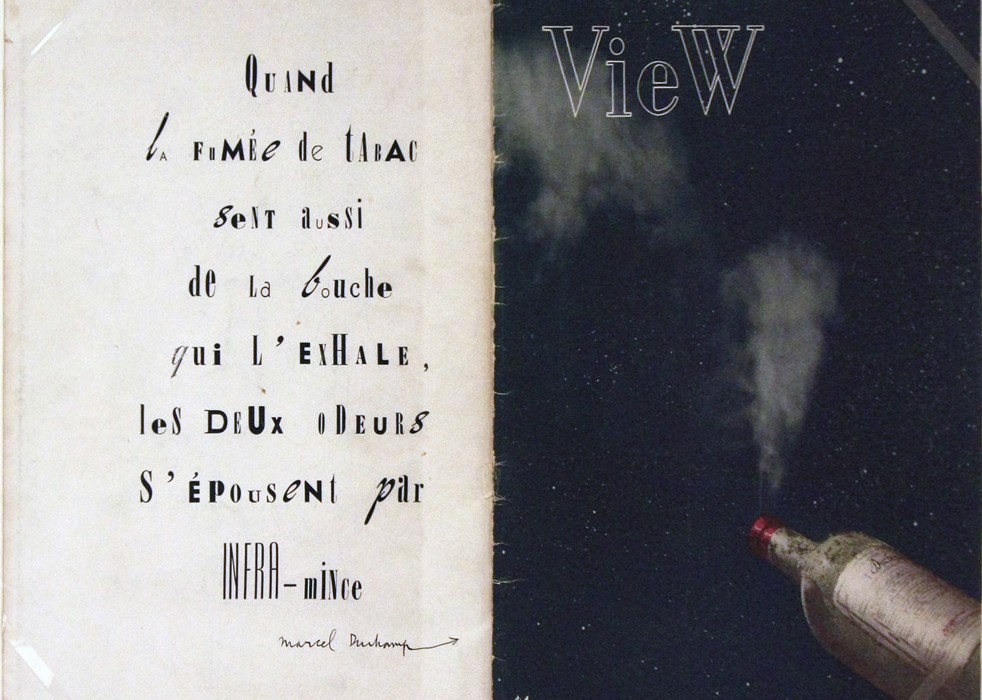 Quand
la fumée de tabac
sent aussi
de la bouche
qui l'exhale,
les deux odeurs
s'épousent par
infra-mince
marcel Duchamp
View